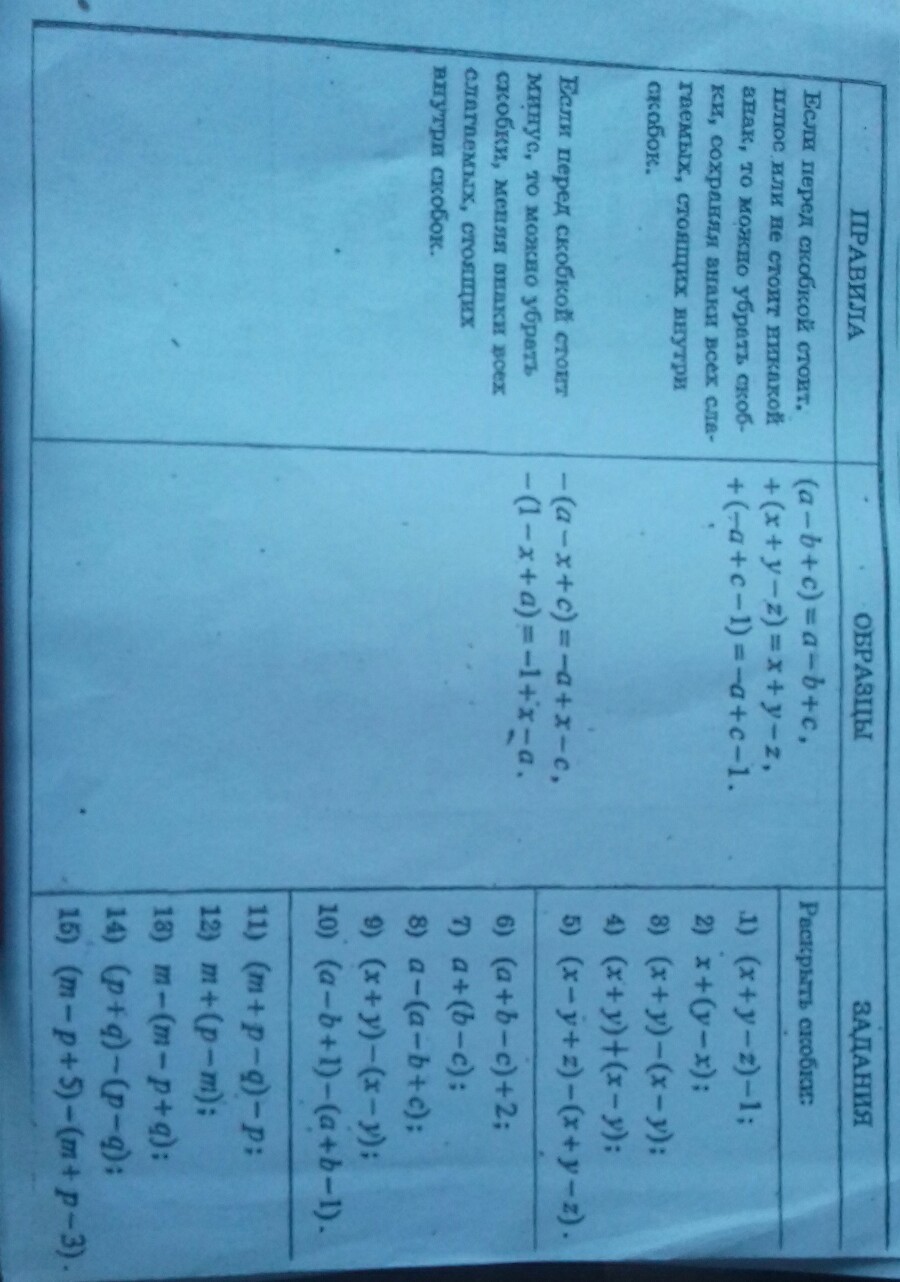 ПРАВИЛА
Если перед скобкой стоит
плюс или не стоит никакой
знак, то можно убрать скоб-
ки, сохраняя знаки всех сла-
гаемых, стоящих внутри
скобок.
Если перед скобкой стоит
минус, то можно убрать
скобки, меняя знаки всех
слагаемых, стоящих
внутри скобок.
ОБРАЗЦЫ
(a−b+c)=a−b+c,
+(x+y−z)=x+y−z,
+(−a+c−1)=−a+c−1.
−(a−x+c)=−a+x−c,
−(1−x+a)=−1+x−a.
ЗАДАНИЯ
Раскрыть скобки:
1) (x+y−z)−1;
2) x+(y−x);
3) (x+y)−(x−y);
4) (x+y)+(x−y);
5) (x−y+z)−(x+y−z).
6) (a+b−c)+2;
7) a+(b−c);
8) a−(a−b+c);
9) (x+y)−(x−y);
10) (a−b+1)−(a+b−1).
11) (m+p−q)−p;
12) m+(p−m);
13) m−(m−p+q);
14) (p+q)−(p−q);
15) (m−p+5)−(m+p−3).